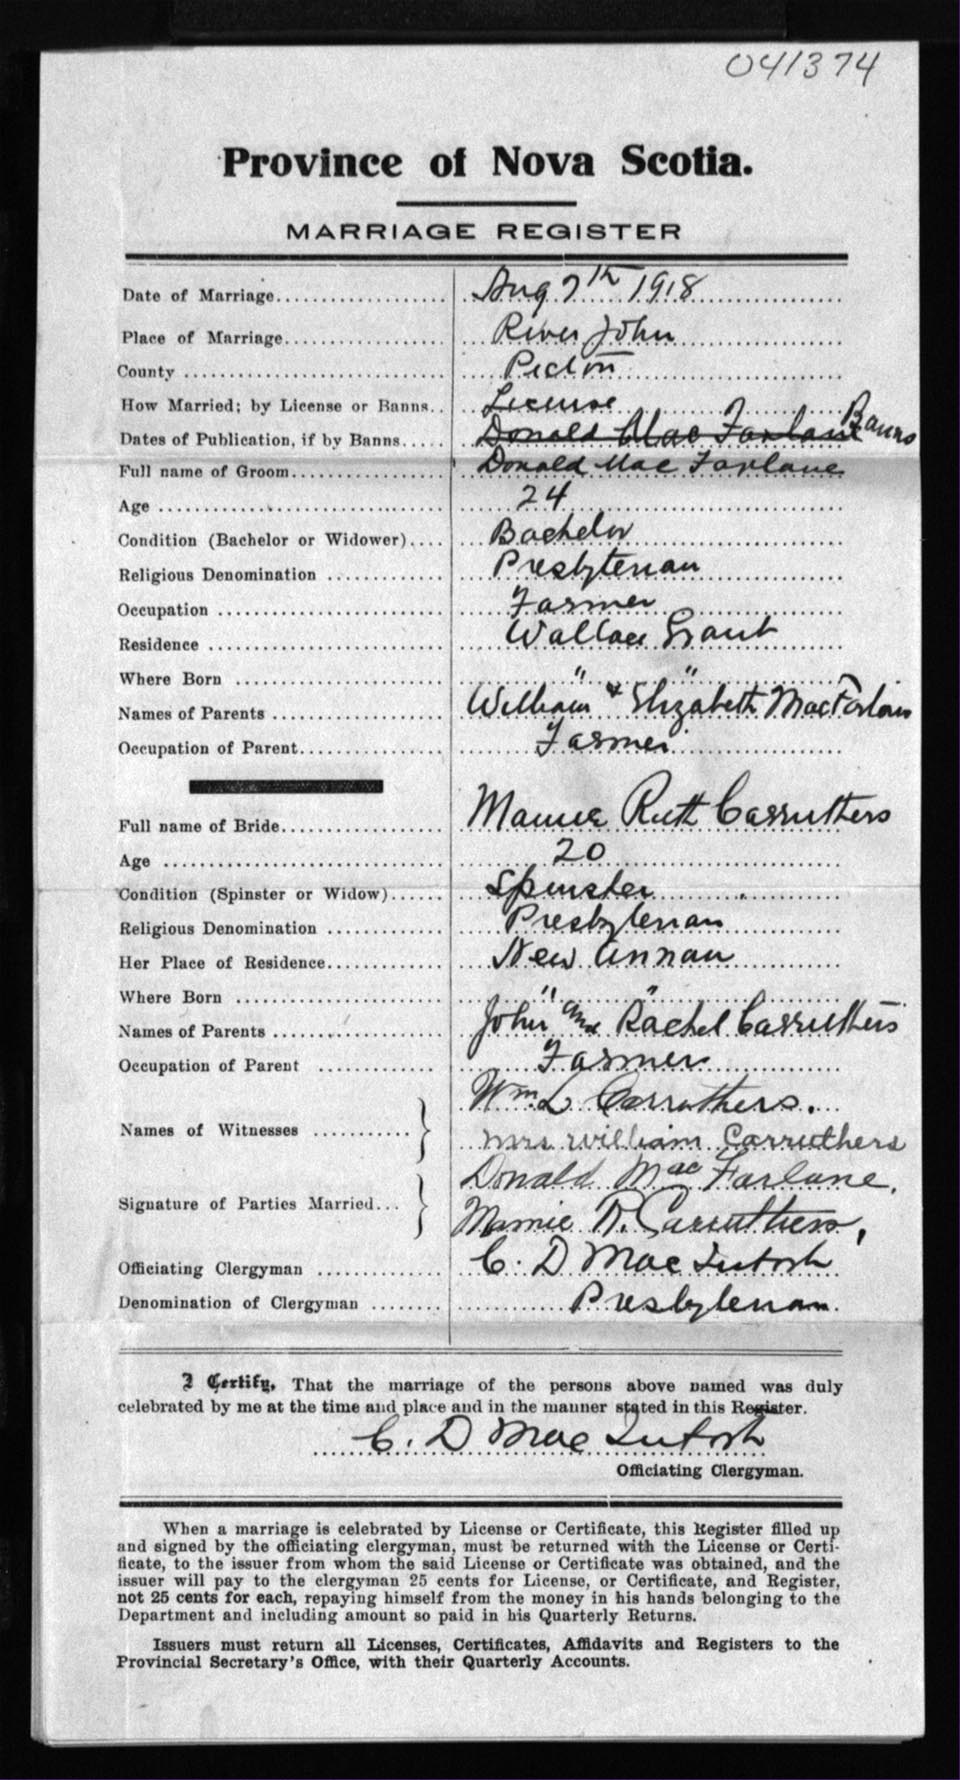 041374
Province of Nova Scotia.
MARRIAGE REGISTER
Date of Marriage.................... Aug 7th 1918
Place of Marriage.................... River John
County .............................. Pictou
How Married; by License or Banns.. License
Banns
Dates of Publication, if by Banns..... Donald MacFarlane
Full name of Groom.................. Donald MacFarlane
Age ................................. 24
Condition (Bachelor or Widower).... Bachelor
Religious Denomination ............. Presbyterian
Occupation .......................... Farmer
Residence ........................... Wallace Grant
Where Born ........................ " "
Names of Parents .................... William & Elizabeth MacFarlane
Occupation of Parent................. Farmer
Full name of Bride................... Mamie Ruth Carruthers
Age ................................. 20
Condition (Spinster or Widow)...... Spinster
Religious Denomination ............. Presbyterian
Her Place of Residence.............. New Annan
Where Born ........................ " "
Names of Parents .................... John and Rachel Carruthers
Occupation of Parent .............. Farmer
Names of Witnesses ........... } Wm. L Carruthers.
Mrs William Carruthers
Signature of Parties Married... } Donald MacFarlane.
Mamie R. Carruthers,
Officiating Clergyman ............... C. D MacIntosh
Denomination of Clergyman ........ Presbyterian.
I Certify, That the marriage of the persons above named was duly
celebrated by me at the time and place and in the manner stated in this Register.
C. D MacIntosh
Officiating Clergyman.
When a marriage is celebrated by License or Certificate, this Register filled up
and signed by the officiating clergyman, must be returned with the License or Certi-
ficate, to the issuer from whom the said License or Certificate was obtained, and the
issuer will pay to the clergyman 25 cents for License, or Certificate, and Register,
not 25 cents for each, repaying himself from the money in his hands belonging to the
Department and including amount so paid in his Quarterly Returns.
Issuers must return all Licenses, Certificates, Affidavits and Registers to the
Provincial Secretary's Office, with their Quarterly Accounts.